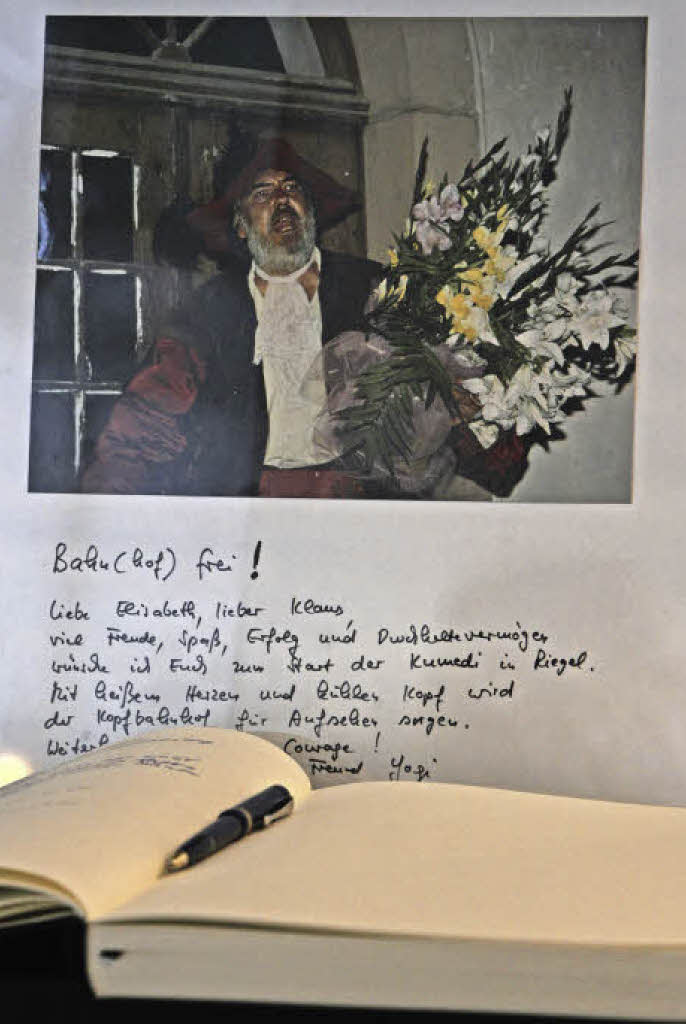 Bahn(hof) frei!
Liebe Elisabeth, lieber Klaus,
viel Freude, Spaß, Erfolg und Durchhaltevermögen
wünsche ich Euch zum Start der Kumedi in Riegel.
Mit heißem Herzen und kühlen Kopf wird
der Kopfbahnhof für Aufsehen sorgen.
Courage!
Freund Yogi